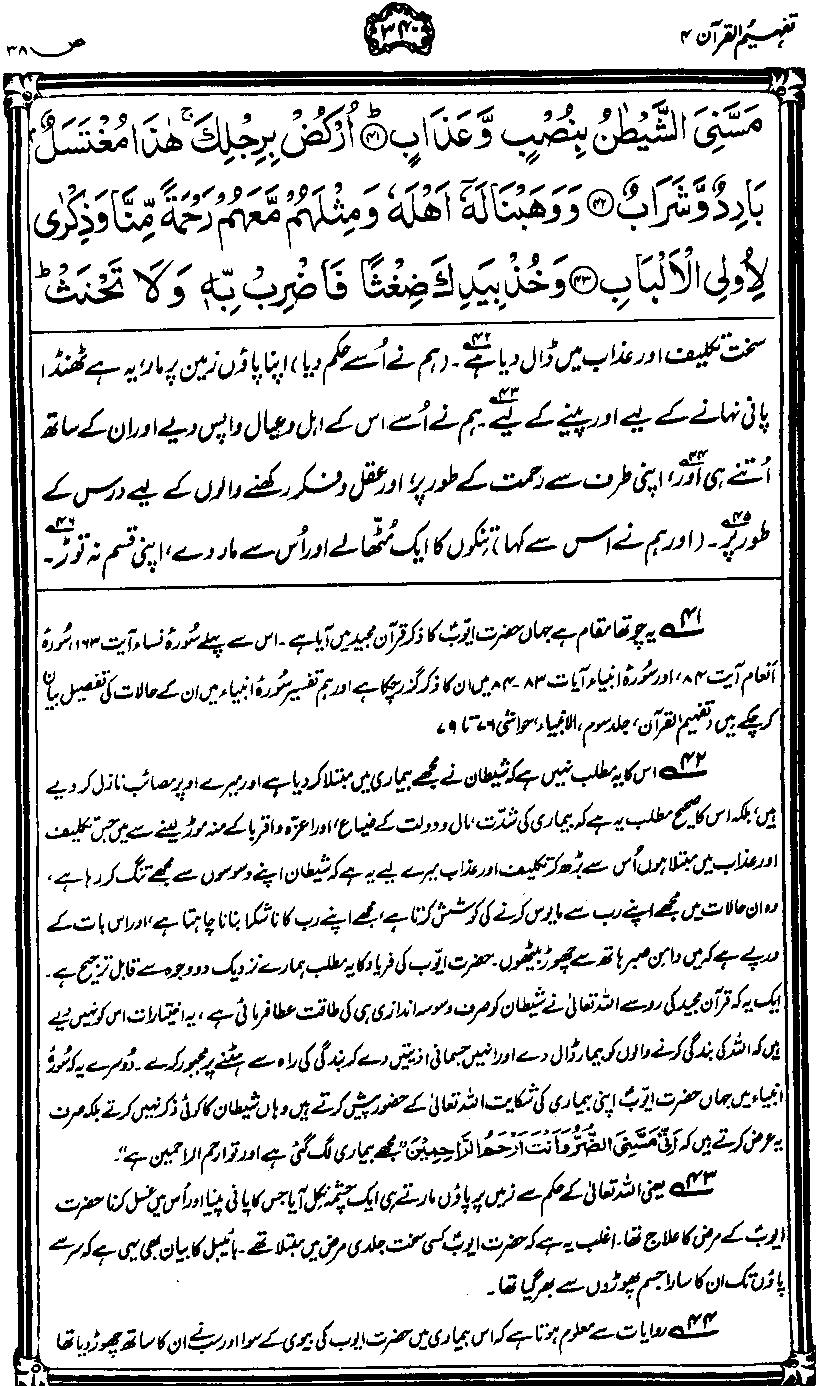 تفہیم القرآن ۴
۳۴۰
ص ۳۸
مَسَّنِیَ الشَّیْطٰنُ بِنُصْبٍ وَّعَذَابٍ ﴿۴۱﴾ اُرْكُضْ بِرِجْلِكَ ۚ هٰذَا مُغْتَسَلٌۢ
بَارِدٌ وَّشَرَابٌ ﴿۴۲﴾ وَوَهَبْنَا لَهٗۤ اَهْلَهٗ وَمِثْلَهُمْ مَّعَهُمْ رَحْمَةً مِّنَّا وَذِكْرٰی
لِاُولِی الْاَلْبَابِ ﴿۴۳﴾ وَخُذْ بِیَدِكَ ضِغْثًا فَاضْرِبْ بِّهٖ وَلَا تَحْنَثْ ؕ
سخت تکلیف اور عذاب میں ڈال دیا ہے۴۲۔ (ہم نے اُسے حکم دیا) اپنا پاؤں زمین پر مار، یہ ہے ٹھنڈا
پانی نہانے کے لیے اور پینے کے لیے۴۳۔ ہم نے اُسے اس کے اہل و عیال واپس دیے اور ان کے ساتھ
اُتنے ہی اور۴۴، اپنی طرف سے رحمت کے طور پر، اور عقل و فکر رکھنے والوں کے لیے درس کے
طور پر۴۵۔ (اور ہم نے اس سے کہا) تِنکوں کا ایک مُٹّھا لے اور اُس سے مار دے، اپنی قسم نہ توڑ۴۶۔
۴۱ یہ چوتھا مقام ہے جہاں حضرت ایوبؑ کا ذکر قرآن مجید میں آیا ہے۔ اس سے پہلے سُورۂ نساء آیت ۱۶۳، سُورۂ
انعام آیت ۸۴، اور سُورۂ انبیاء آیات ۸۳-۸۴ میں ان کا ذکر گزر چکا ہے اور ہم تفسیر سُورۂ انبیاء میں ان کے حالات کی تفصیل بیان
کر چکے ہیں (تفہیم القرآن، جلد سوم، الانبیاء، حواشی ۷۶ تا ۷۹
۴۲ اس کا یہ مطلب نہیں ہے کہ شیطان نے مجھے بیماری میں مبتلا کر دیا ہے اور میرے اوپر مصائب نازل کر دیے
ہیں، بلکہ اس کا صحیح مطلب یہ ہے کہ بیماری کی شدّت، مال و دولت کے ضیاع، اور اعزّہ و اقربا کے منہ موڑ لینے سے میں جس تکلیف
اور عذاب میں مبتلا ہوں اُس سے بڑھ کر تکلیف اور عذاب میرے لیے یہ ہے کہ شیطان اپنے وسوسوں سے مجھے تنگ کر رہا ہے،
وہ ان حالات میں مجھے اپنے رب سے مایوس کرنے کی کوشش کرتا ہے، مجھے اپنے رب کا ناشکرا بنانا چاہتا ہے، اور اس بات کے
درپے ہے کہ میں دامنِ صبر ہاتھ سے چھوڑ بیٹھوں۔ حضرت ایّوب کی فریاد کا یہ مطلب ہمارے نزدیک دو وجوہ سے قابل ترجیح ہے۔
ایک یہ کہ قرآن مجید کی رو سے اللہ تعالیٰ نے شیطان کو صرف وسوسہ اندازی ہی کی طاقت عطا فرمائی ہے، یہ اختیارات اس کو نہیں دیے
ہیں کہ اللہ کی بندگی کرنے والوں کو بیمار ڈال دے اور انہیں جسمانی اذیتیں دے کر بندگی کی راہ سے ہٹنے پر مجبور کرے۔ دُوسرے یہ کہ سُورۂ
انبیاء میں جہاں حضرت ایّوبؑ اپنی بیماری کی شکایت اللہ تعالیٰ کے حضور پیش کرتے ہیں وہاں شیطان کا کوئی ذکر نہیں کرتے بلکہ صرف
یہ عرض کرتے ہیں کہ اَنِّیْ مَسَّنِیَ الضُّرُّ وَاَنْتَ اَرْحَمُ الرَّاحِمِیْنَ، "مجھے بیماری لگ گئی ہے اور تو ارحم الراحمین ہے"۔
۴۳ یعنی اللہ تعالیٰ کے حکم سے زمین پر پاؤں مارتے ہی ایک چشمہ نکل آیا جس کا پانی پینا اور اُس میں غسل کرنا حضرت
ایوبؑ کے مرض کا علاج تھا۔ اغلب یہ ہے کہ حضرت ایوبؑ کسی سخت جلدی مرض میں مبتلا تھے۔ بائیبل کا بیان بھی یہی ہے کہ سر سے
پاؤں تک ان کا سارا جسم پھوڑوں سے بھر گیا تھا۔
۴۴ روایات سے معلوم ہوتا ہے کہ اس بیماری میں حضرت ایوب کی بیوی کے سوا اور سب نے ان کا ساتھ چھوڑ دیا تھا